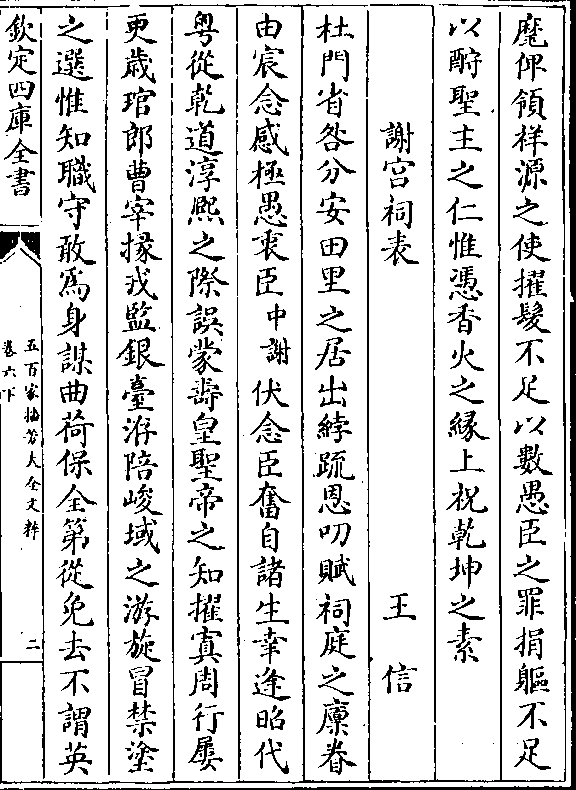 麾俾領祥源之使擢髮不足以數愚臣之罪捐軀不足
以酧聖主之仁惟憑香火之縁上祝乾坤之素
謝宫祠表 王信
杜門省咎分安田里之居出綍疏恩叨賦祠庭之廪眷
由宸念感極愚衷臣中謝伏念臣奮自諸生幸逢昭代
粤從乾道淳熙之際誤蒙壽皇聖帝之知擢寘周行屢
更歳琯郎曹宰掾戎監銀臺洊陪峻域之游旋冒禁塗
之選惟知職守敢爲身謀曲荷保全第從免去不謂英
欽定四庫全書
五百家播芳大全文粹
卷六下
二